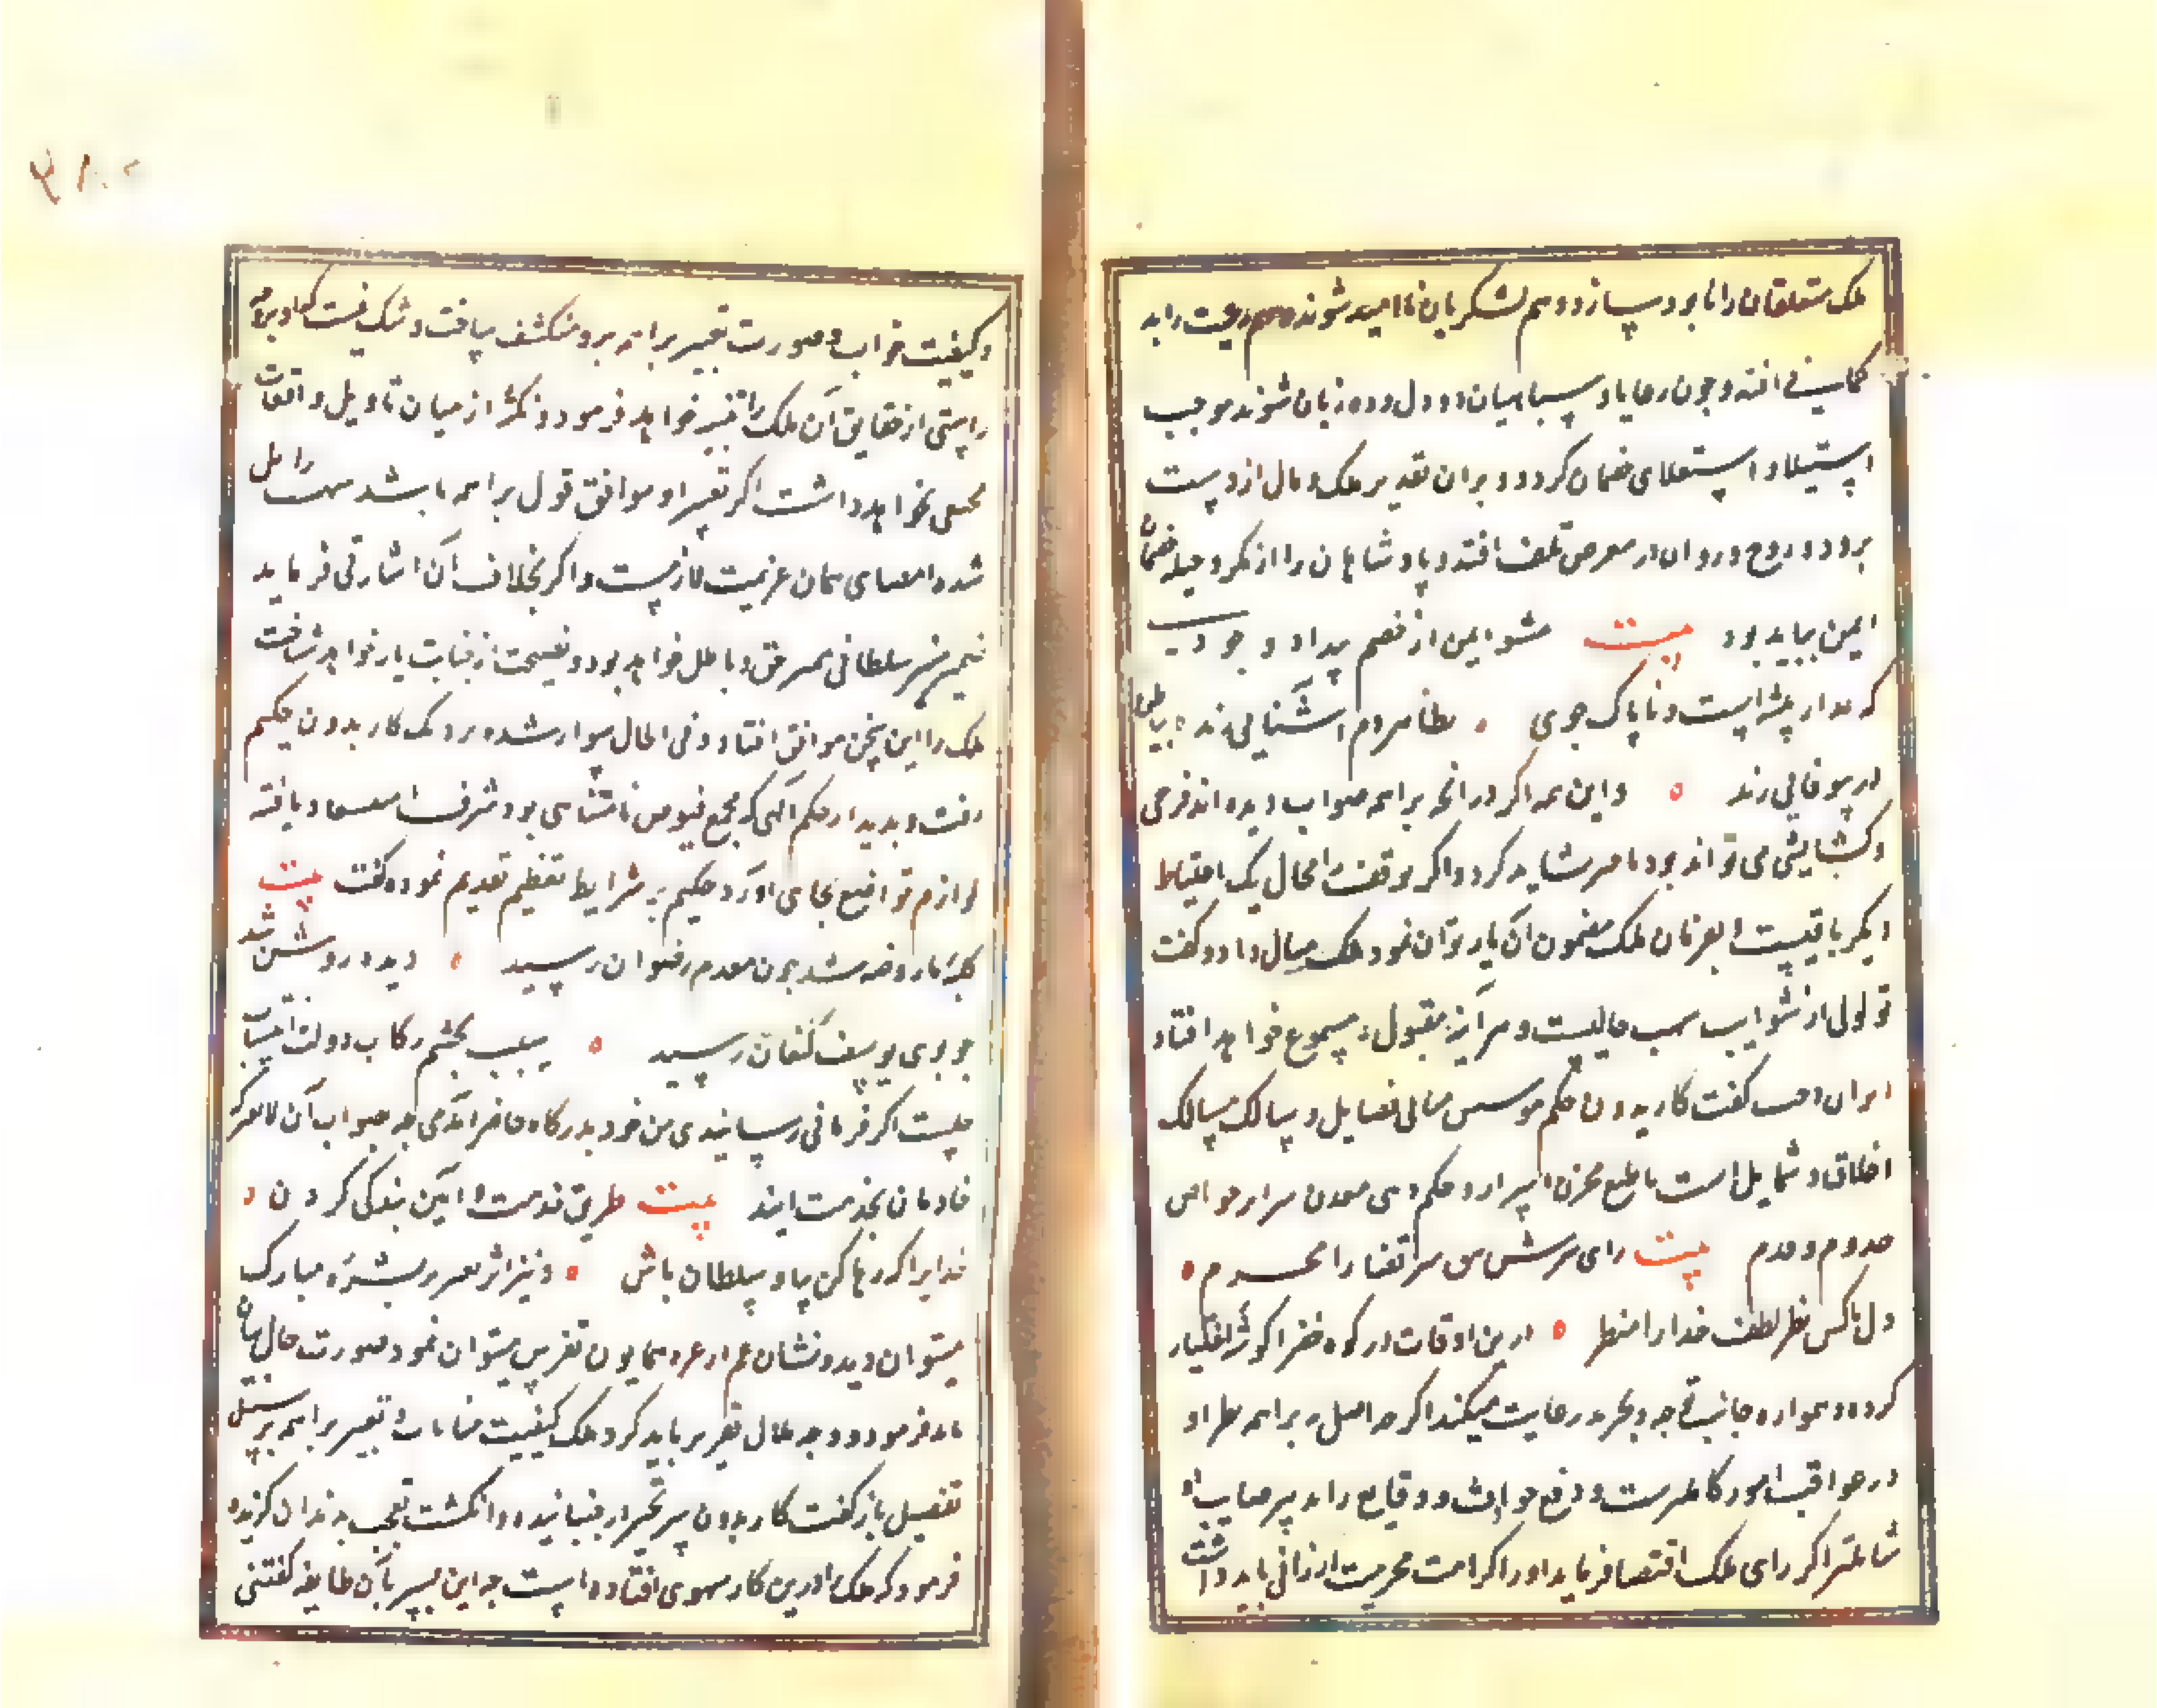 ملک متعلقان را نابود سازد و هم لشکریان ناامید شوند و هم رعیت را بد
کمانی افتد و چون رعایا و سپاهیان دو دل و ده زبان شوند موجب
استیلا و استعلای خصمان کردد و بران تقدیر ملک و مال از دست
برود و روح و روان در معرض تلف افتد و پادشاهان را از مکر و حیله خصمان
ایمن نباید بود بیت مشو ایمن از خصم بیداد و جور
که غدار پیشه است و ناپاک جوی بظاهر دم آشنایی زند بباطن
در بیوفایی زند و این همه اکر در انچه براهمه صواب دیده اند فرجی
و کشایشی می تواند بود تاخیر نشاید کرد و اکر توقف را مجال یک احتیاط
دیکر باقیست و بفرمان ملک مضمون آن باز توان نمود ملک مثال داد و کفت
قول تو از شوایب خالیست و هر آینه مقبول و مسموع خواهد افتاد
ایران دخت کفت کاریدون حکیم موسس مبانی فضایل و سالک مسالک
اخلاق و شمایل است با طبع مخزن اسرار و حکم وی معدن
بیت رای سر قضا را محرم
دل نظر لطف خدا را منظر درین اوقات در کوه خضرا کوشه اختیار
کرده و همواره جانب تجرید رعایت میکند اکر چه اصل براهمه
در عواقب امور کاملترست و دفع حوادث و وقایع را تدبیر صایب او
شاملتر اکر رای ملک اقتضا فرماید او را کرامت محرمیت ارزانی باید داشت
و کیفیت خواب و صورت تعبیر براهمه برو منکشف ساخت و شک نیست که او بر وجه
راستی از حقایق آن ملک را تنبیه خواهد فرمود و نکته از میان تاویل واقعات
مخفی نخواهد داشت اکر تعبیر او موافق قول براهمه باشد شبهت زایل
شد و امضای همان عزیمت لازمست و اکر بخلاف آن اشارتی فرماید
ضمیر منیر سلطانی ممیز حق و باطل خواهد بود و نصیحت از خیانت باز خواهد شناخت
ملک را این سخن موافق افتاد و فی الحال سوار شده نزدیک کاریدون حکیم
رفت و بدیدار حکیم الهی که مجمع فیوض نامتناهی بود شرف استسعاد یافته
لوازم تواضع بجای اورد حکیم نیز شرایط تعظیم تقدیم نموده کفت بیت
کلبه ما روضه شد چون مقدم رضوان رسید دیده روشن شد
چو بوی یوسف کنعان رسید سبب تجشم رکاب دولت انتساب
چیست اکر فرمانی رسانیدی من خود بدرکاه حاضر آمدمی چه صواب آن لایقتر که
خادمان بخدمت ایند بیت طریق خدمت و آیین بندکی کردن
خدایرا که رها کن بما و سلطان باش و نیز اثر تغیر در بشره مبارک
میتوان دید و نشان غم از غره همایون تفرس میتوان نمود صورت حال بیان
باید فرمود و وجه ملال تقریر باید کرد ملک کیفیت منامات و تعبیر براهمه بر سبیل
تفصیل بازکفت کاریدون سر تحیر بجنبانیده و انکشت تعجب بدندان کزیده
فرمود که ملک را درین کار سهوی افتاده است چه این سر بآن طایفه کفتنی